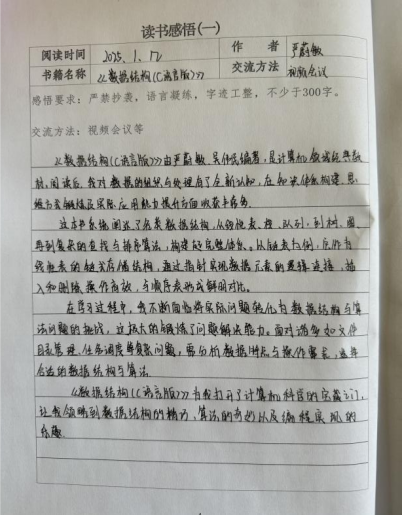 读书感悟(一)
阅读时间 2025.1.12 作者 严蔚敏
书籍名称 《数据结构(C语言版)》 交流方法 视频会议
感悟要求:严禁抄袭,语言凝练,字迹工整,不少于300字。
交流方法:视频会议等
《数据结构(C语言版)》由严蔚敏 吴伟民编著,是计算机领域经典教
材,阅读后,我对数据的组织与处理有了全新认知,在知识体系构建、思
维方式锻炼及实际应用能力提升方面收获丰硕。
这本书系统阐述了各类数据结构,从线性表、栈、队列,到树、图
再到复杂的查找与排序算法,构建起完整体系。以链表为例,它作为
线性表的链式存储结构,通过指针实现数据元素的逻辑连接,插
入和删除操作高效,与顺序表形成鲜明对比。
在学习过程中,我不断面临将实际问题转化为数据结构与算
法问题的挑战,这极大的锻炼了问题解决能力。面对诸如文件
目录管理、任务调度等复杂问题,需分析数据特点与操作需求,选择
合适的数据结构与算法。
《数据结构(C语言版)》为我打开了计算机科学的宝藏之门,
让我领略到数据结构的魅力、算法的奇妙以及编程实现的
乐趣